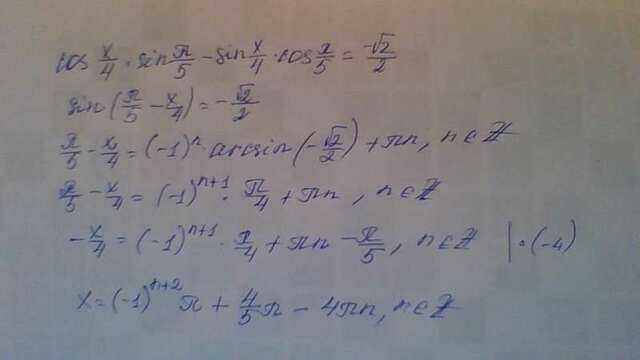 cos x/4 · sin π/5 - sin x/4 · cos π/5 = -√2/2
sin(π/5 - x/4) = -√2/2
π/5 - x/4 = (-1)^n arcsin(-√2/2) + πn, n∈Z
π/5 - x/4 = (-1)^(n+1) · π/4 + πn, n∈Z
-x/4 = (-1)^(n+1) · π/4 + πn - π/5, n∈Z | · (-4)
x = (-1)^(n+2) π + 4/5 π - 4πn, n∈Z